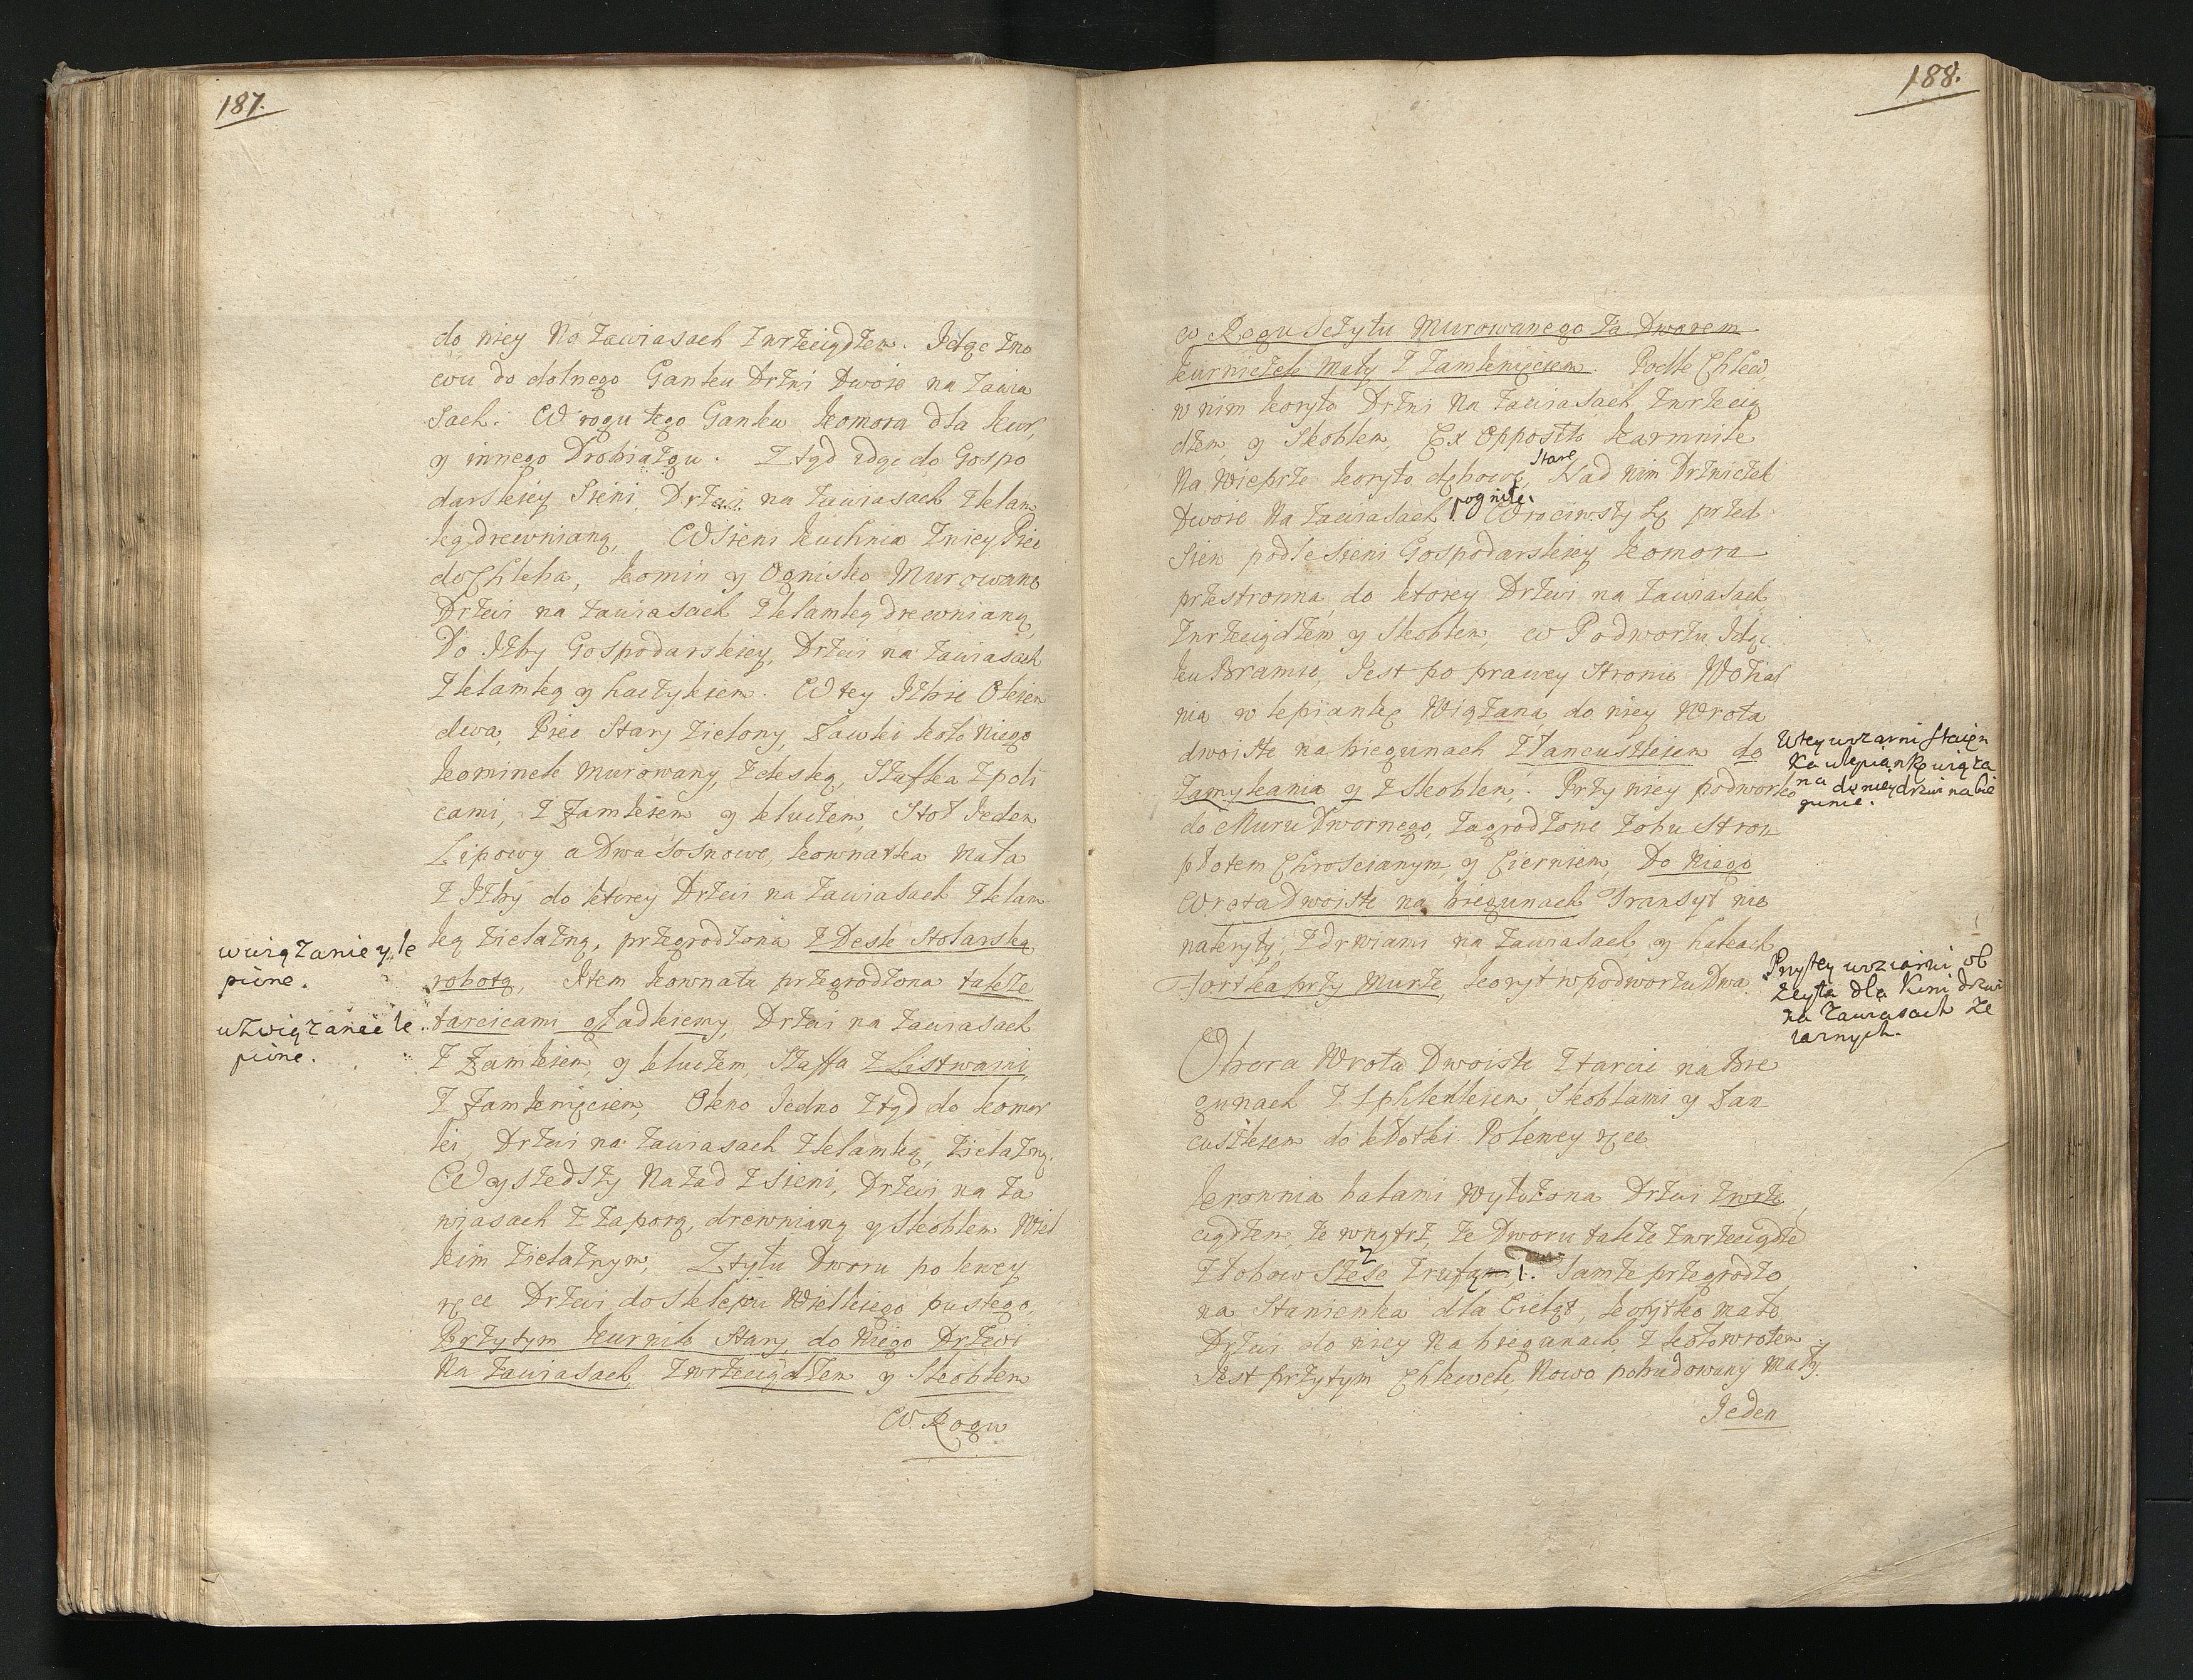 187.
do niey Na Zawiasach Zwrzeciądzem. Idąc Zno
wu do dolnego Ganku Drzwi Dwoie na Zawia
Sach. W rogu tego Ganku komora dla kur,
y innego Drobiazgu. Ztąd idąc do Gospo
darskiey Sieni, Drzwi na Zawiasach Zklam
ką drewnianą, W Sieni kuchnia Zniey Piec
do Chleba, komin y Ognisko Murowane
Drzwi na Zawiasach Zklamką drewnianą,
Do Izby Gospodarskiey, Drzwi na Zawiasach
Zklamką y haczykiem. W tey Izbie Okien
dwa, Piec Stary Zielony, Ławki koło Niego
kominek Murowany, Zdeską, Szafka Zpoli
cami, Z Zamkiem y kluczem, Stoł Ieden
Lipowy a Dwa Sosnowe, kownatka Mała
Z Izby do ktorey Drzwi na Zawiasach Zklam
ką Zielazną, przegrodzona Z Desk Stolarską
robotą, Item kownata przegrodzona także
tarcicami gładkiemy, Drzwi na Zawiasach
Z Zamkiem y kluczem, Szaffa Z Listwami,
Z Zamknięciem, Okno Iedno Ztąd do komor
ki, Drzwi na Zawiasach Zklamką, Zielazną.
Wyszedszy Nazad Z sieni, Drzwi na Za
wiasach Z Zaporą, drewnianą y Skoblem Wiel
kim Zielaznym, Ztyłu Dworu po lewey
ręce Drzwi do Sklepu Wielkiego pustego,
Przytym kurnik Stary, do Niego Drzwi
Na Zawiasach, Zwrzeciądzem y Skoblem
W Rogu
wwiązanie y le
pione.
uZwiązanie le
pione.
188.
w Rogu Sczytu Murowanego Za Dworem
kurniczek Mały Z Zamknięciem. Podle Chlew
w nim koryto Drzwi Na Zawiasach, Zwrzecią
dzem y Skoblem, Ex Opposito karmnik
Na Wieprze koryto dębowe, Stare Nad nim Drzwiczek
Dwoie Na Zawiasach. pogniłe. Wrociwszy Sę przed
Sien podle Sieni Gospodarskiey komora
przestronna, do ktorey Drzwi na Zawiasach
Zwrzeciądzem y Skoblem, w Podworzu Idąc
ku Bramie, Iest po prawey Stronie Woziar
nia w lepiankę Wiązana, do niey Wrota
dwoiste na biegunach Z Łancuszkiem do
Zamykania y Z Skoblem, Przy niey podworko
do Muru Dwornego, Zagrodzone Zobu Stron
płotem Chrościanym, y Cierniem, Do Niego
Wrota Dwoiste na biegunach Transyt nie
nakryty, Z drwiami na Zawiasach, y hakach
Fortka przy Murze, koryt w podworzu Dwa.
W tey wozarni Staien
ka w lepiankę wiąza
na do niey drzwi na bie
gunie.
Przy tey woziarni ob
zeyta dla koni drzwi
na Zawiasach Ze
laznych.
Obora Wrota Dwoiste Z tarcic na Bie
gunach Z Skoblami y Łan
cuszkiem do kłotki. Po lewey ręce
krownia balami Wyłożona Drzwi Zwrze
ciądzem ze wnątrz, ze Dworu także Zwrzeciądze
Złobow Tamże przegrodzo
na Stanienka dla Cieląt, korytko małe
Drzwi do niey Na biegunach, Z kołowrotem
Iest przytym Chlewek, Nowo pobudowany Mały.
Ieden